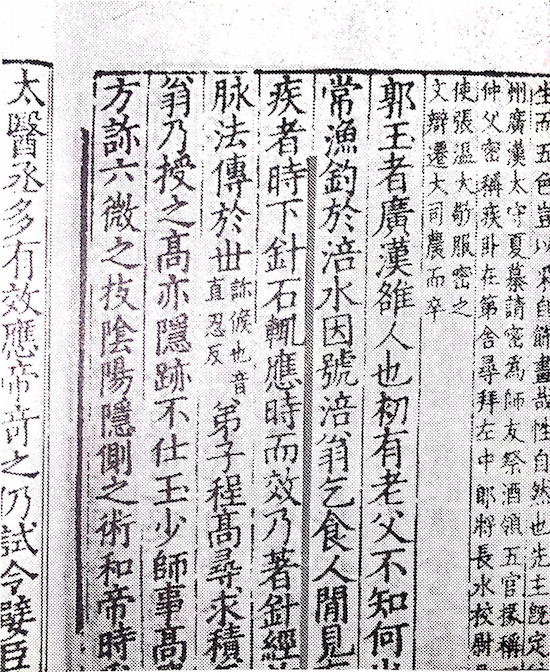 生而五色豈以采自飾畫哉性自然也先主既定
州廣漢太守夏慕請密為師友祭酒領五官掾稱
仲父密稱疾卧在第舍尋拜左中郎將長水校尉
使張溫大敬服密之
文辯遷大司農而卒
郭玉者廣漢雒人也初有老父不知何
常漁釣於涪水因號涪翁乞食人間見
疾者時下針石輒應時而效乃著針經
脉法傳於丗
診候也音
直忍反
弟子程高尋求積
翁乃授之高亦隱跡不仕玉少師事高
方診六微之技陰陽隱側之術和帝時
太醫丞多有效應帝奇之仍試令嬖臣